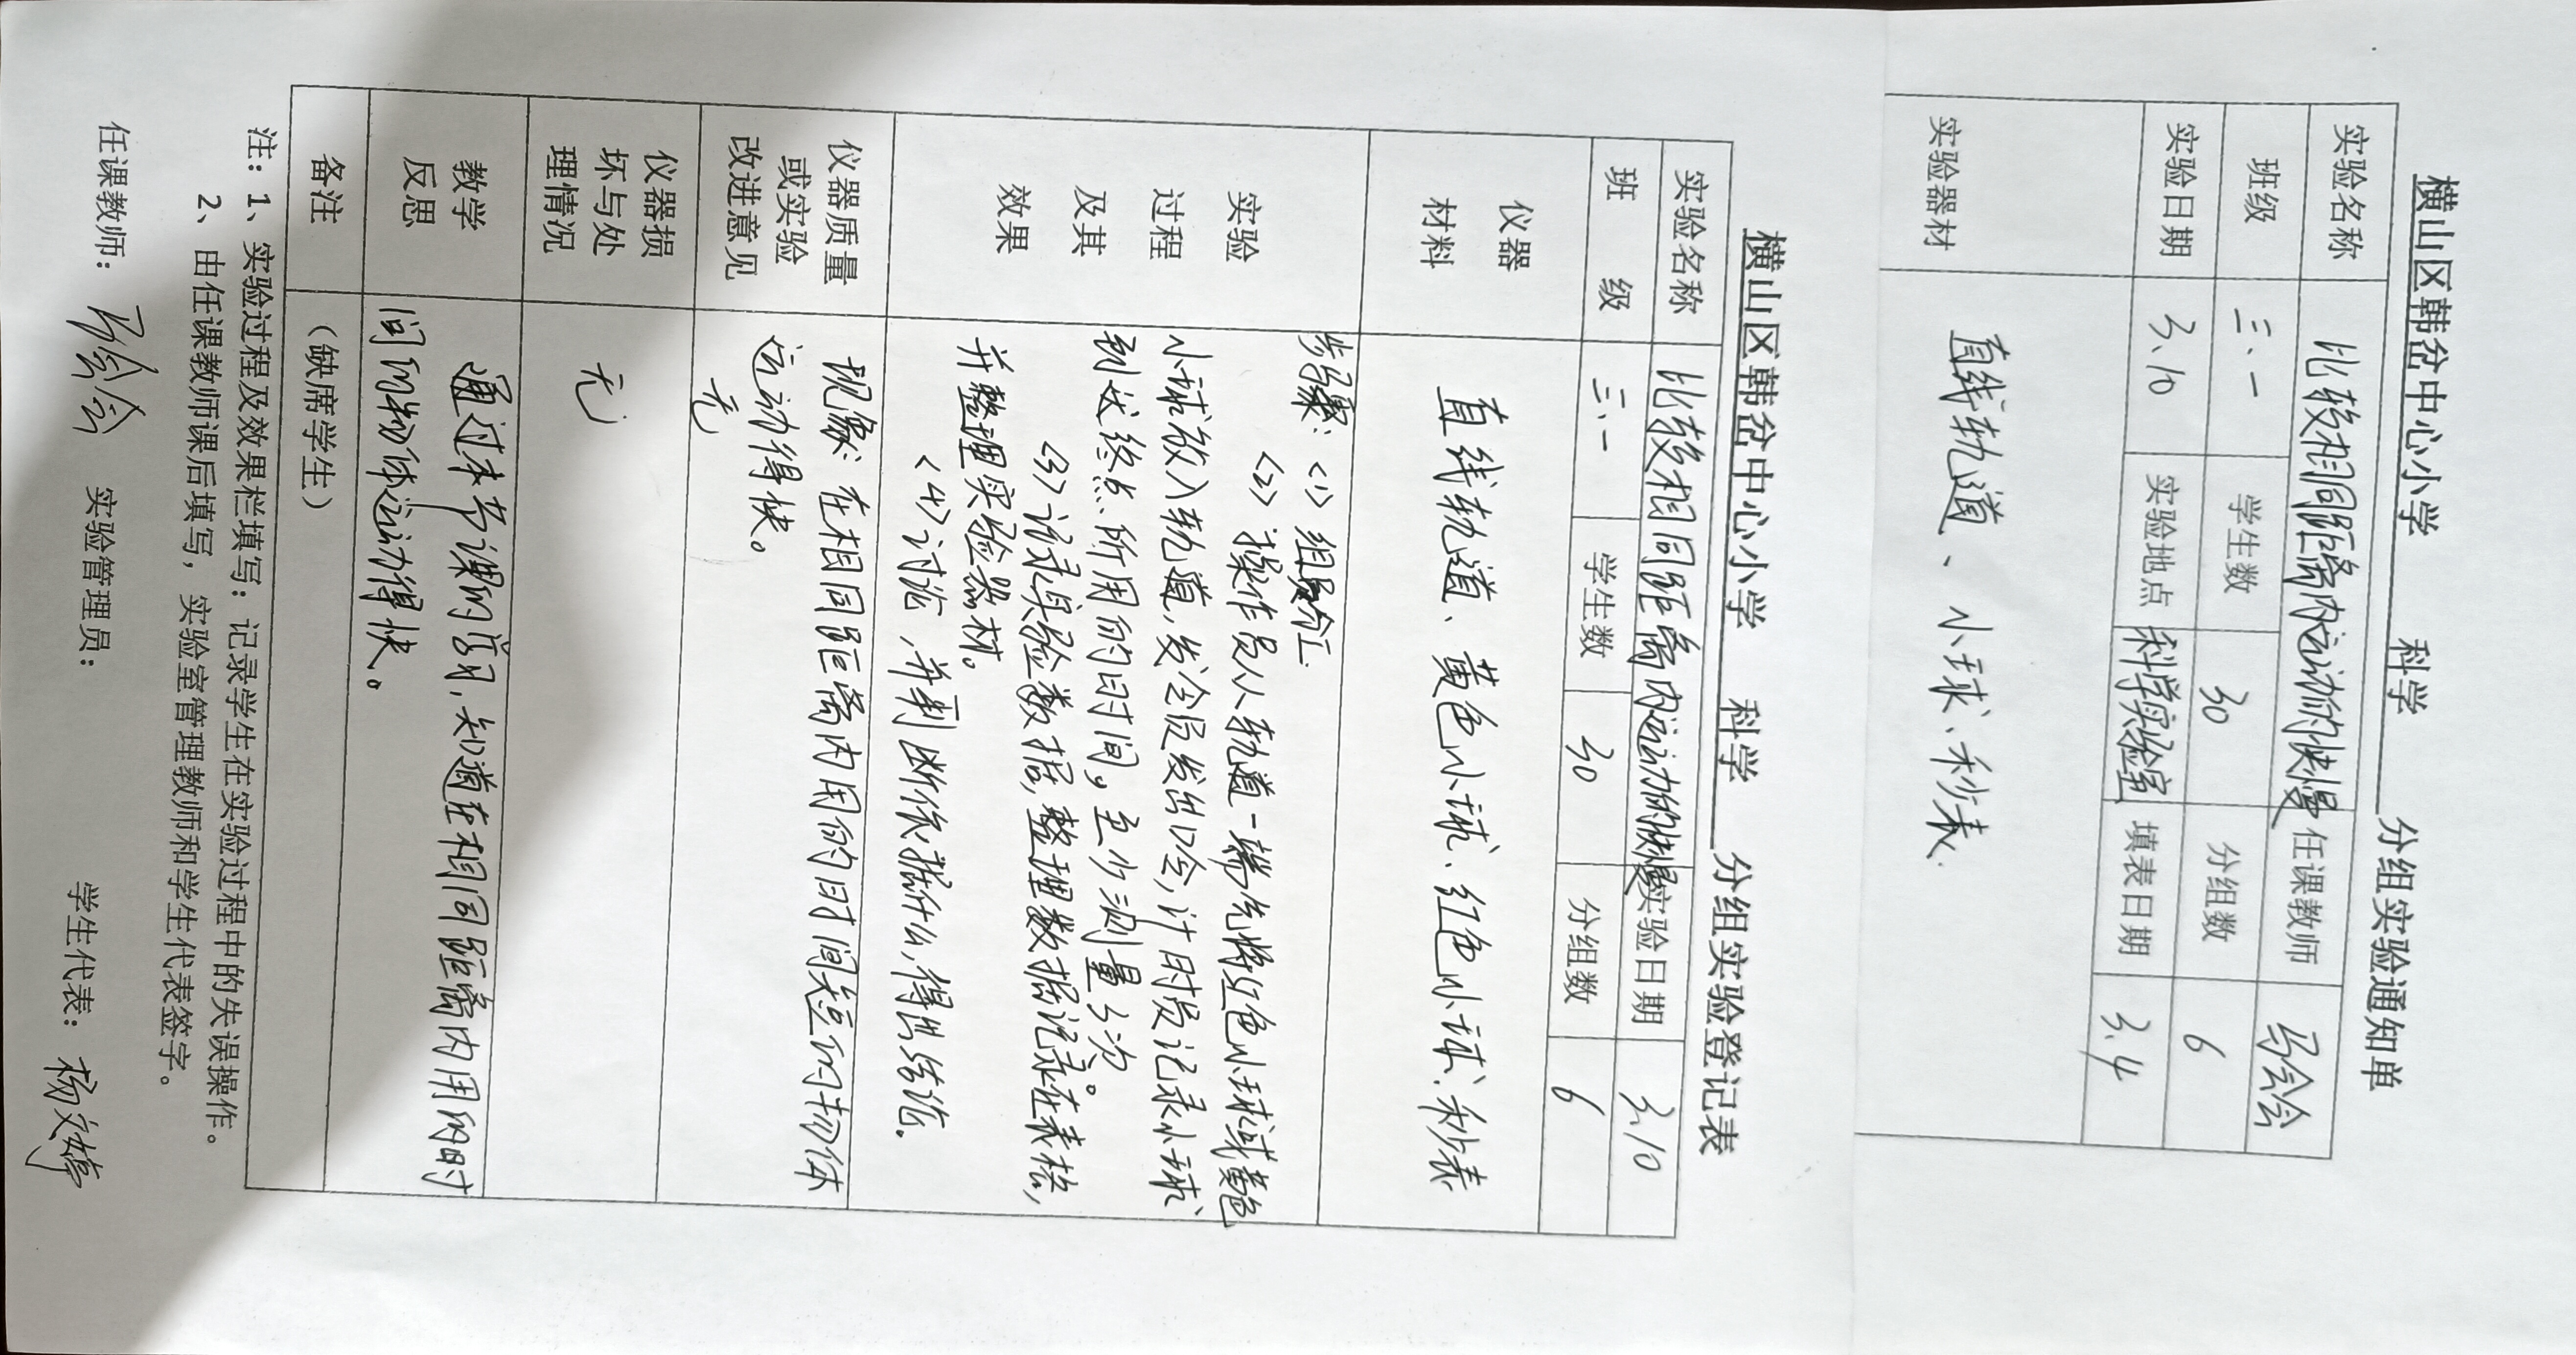 横山区韩岔中心小学 科学 分组实验通知单
实验名称 比较相同距离内运动的快慢 任课教师 马会会
班级 三、一 学生数 30 分组数 6
实验日期 3.10 实验地点 科学实验室 填表日期 3.4
实验器材 直线轨道、小球、秒表.
横山区韩岔中心小学 科学 分组实验登记表
实验名称 比较相同距离内运动的快慢 实验日期 3.10
班 级 三、一 学生数 30 分组数 6
仪器
材料
直线轨道、黄色小球、红色小球、秒表
实验
过程
及其
效果
步骤: <1> 组员分工.
<2> 操作员从轨道一端先将红色小球或黄色
小球放入轨道,发令员发出口令,计时员记录小球
到达终点所用的时间,至少测量3次。
<3> 记录实验数据,整理数据记录在表格,
并整理实验器材。
<4> 讨论,并判断依据什么,得出结论.
仪器质量
或实验
改进意见
现象: 在相同距离内用的时间短的物体
运动得快。
无
仪器损
坏与处
理情况
无
教学
反思
通过本节课的学习,知道在相同距离内用的时
间的物体运动得快。
备注 （缺席学生）
注：1、实验过程及效果栏填写：记录学生在实验过程中的失误操作。
2、由任课教师课后填写，实验室管理教师和学生代表签字。
任课教师： 马会会 实验管理员： 学生代表： 杨文婷